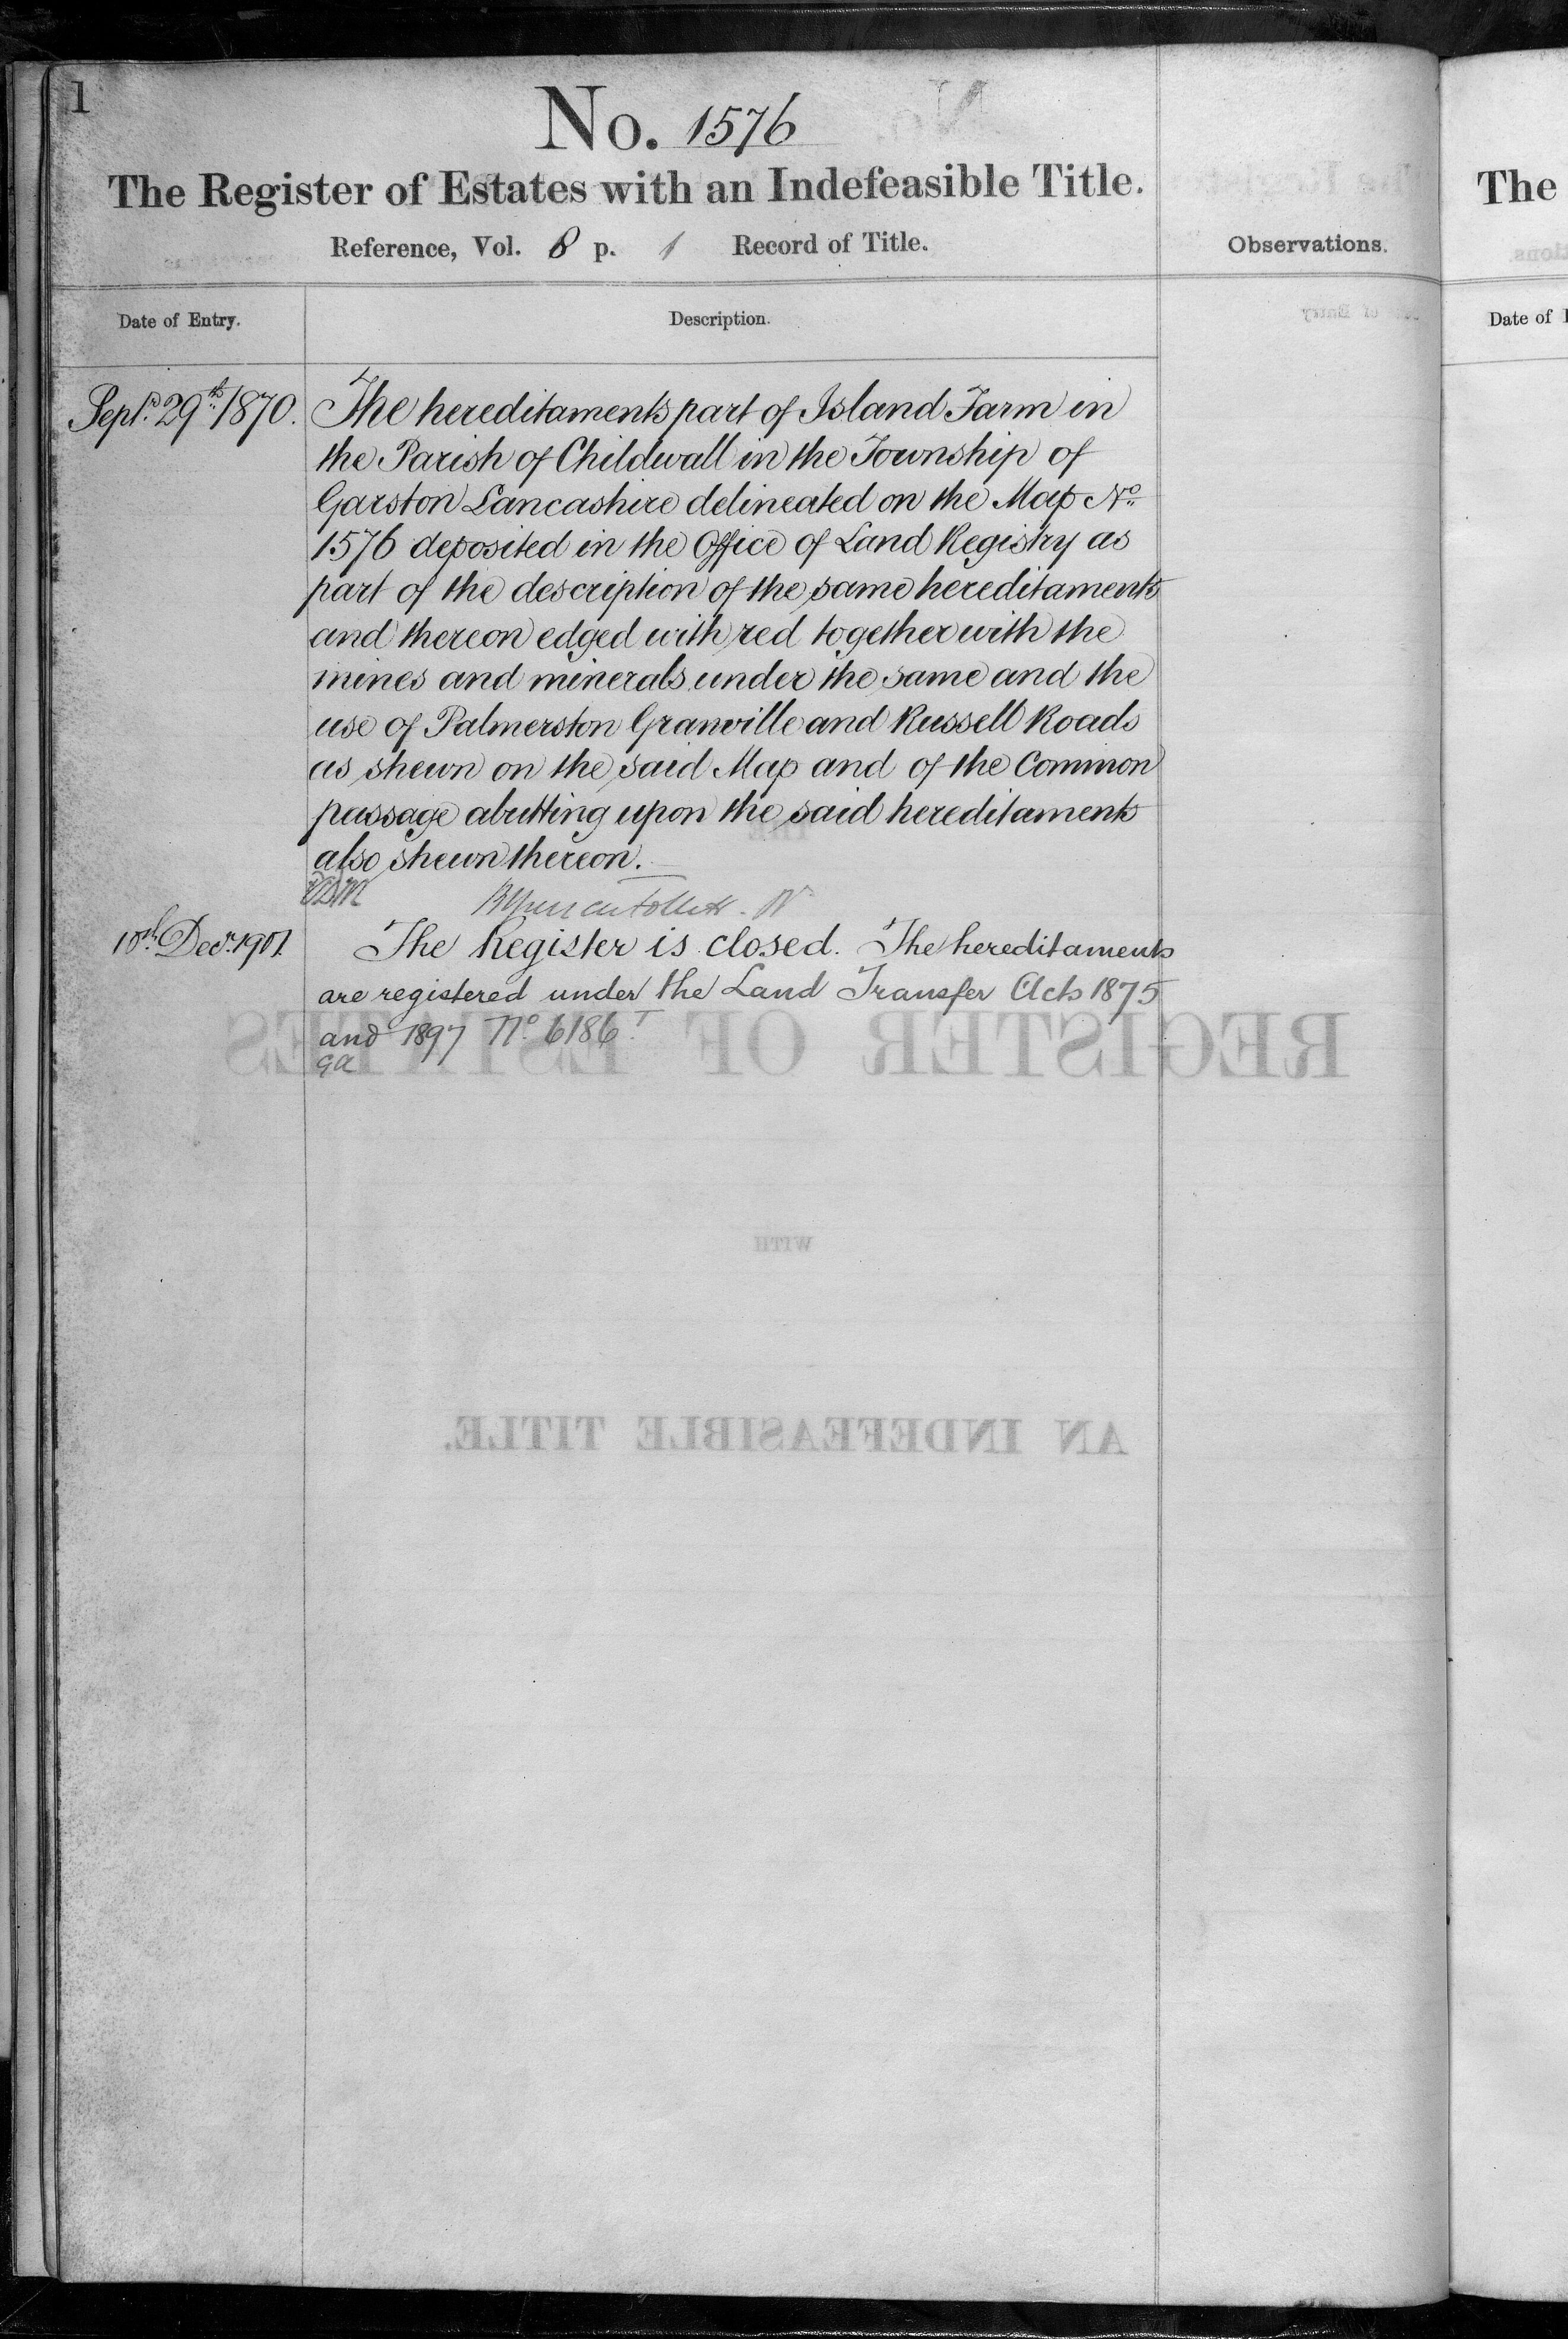 1
No. 1576
The Register of Estates with an Indefeasible Title.
Reference, Vol. 8 p. 1 Record of Title.
Observations.
Date of Entry.
Description.
Septr. 29th. 1870.
The hereditaments part of Island Farm in
the Parish of Childwall in the Township of
Garston Lancashire delineated on the Map No.
1576 deposited in the Office of Land Registry as
part of the description of the same hereditaments
and thereon edged with red together with the
mines and minerals under the same and the
use of Palmerston Granville and Russell Roads
as shewn on the said Map and of the Common
passage abutting upon the said hereditaments
also shewn thereon.
10th. Decr. 1901.
The Register is closed. The hereditaments
are registered under the Land Transfer Acts 1875
and 1897 No. 6186T.
GA
REGISTER OF ESTATES
WITH
AN INDEFEASIBLE TITLE.
The
Date of